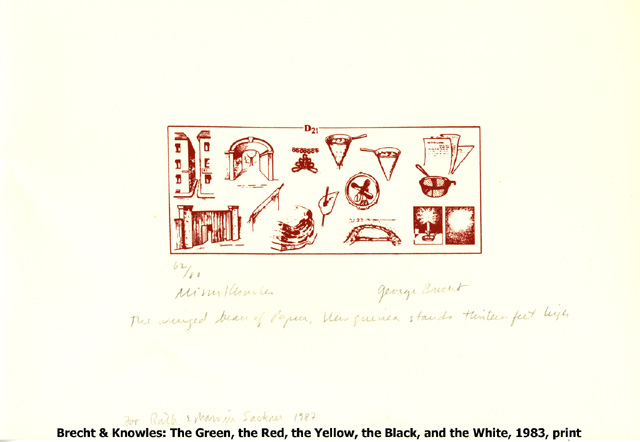 D21
62/80
Alison Knowles
George Brecht
The winged bean of Papua, New Guinea stands thirteen feet high
For Ruth & Marvin Sackner 1987
Brecht & Knowles: The Green, the Red, the Yellow, the Black, and the White, 1983, print